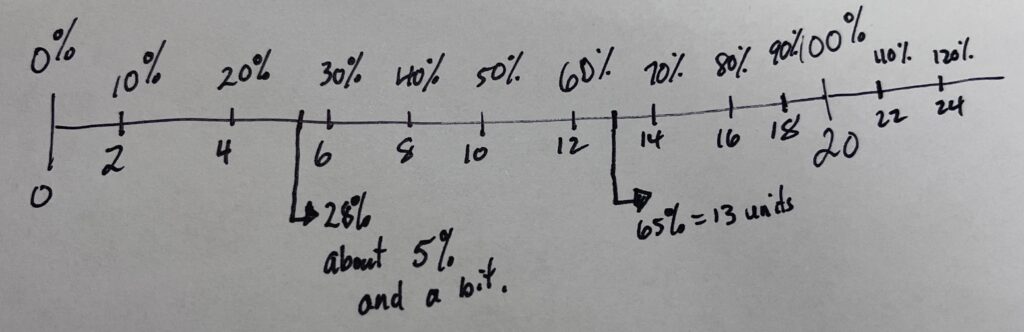 0% 10% 20% 30% 40% 50% 60% 70% 80% 90% 100% 110% 120%
0 2 4 6 8 10 12 14 16 18 20 22 24
28%
about 5%
and a bit.
65% = 13 units